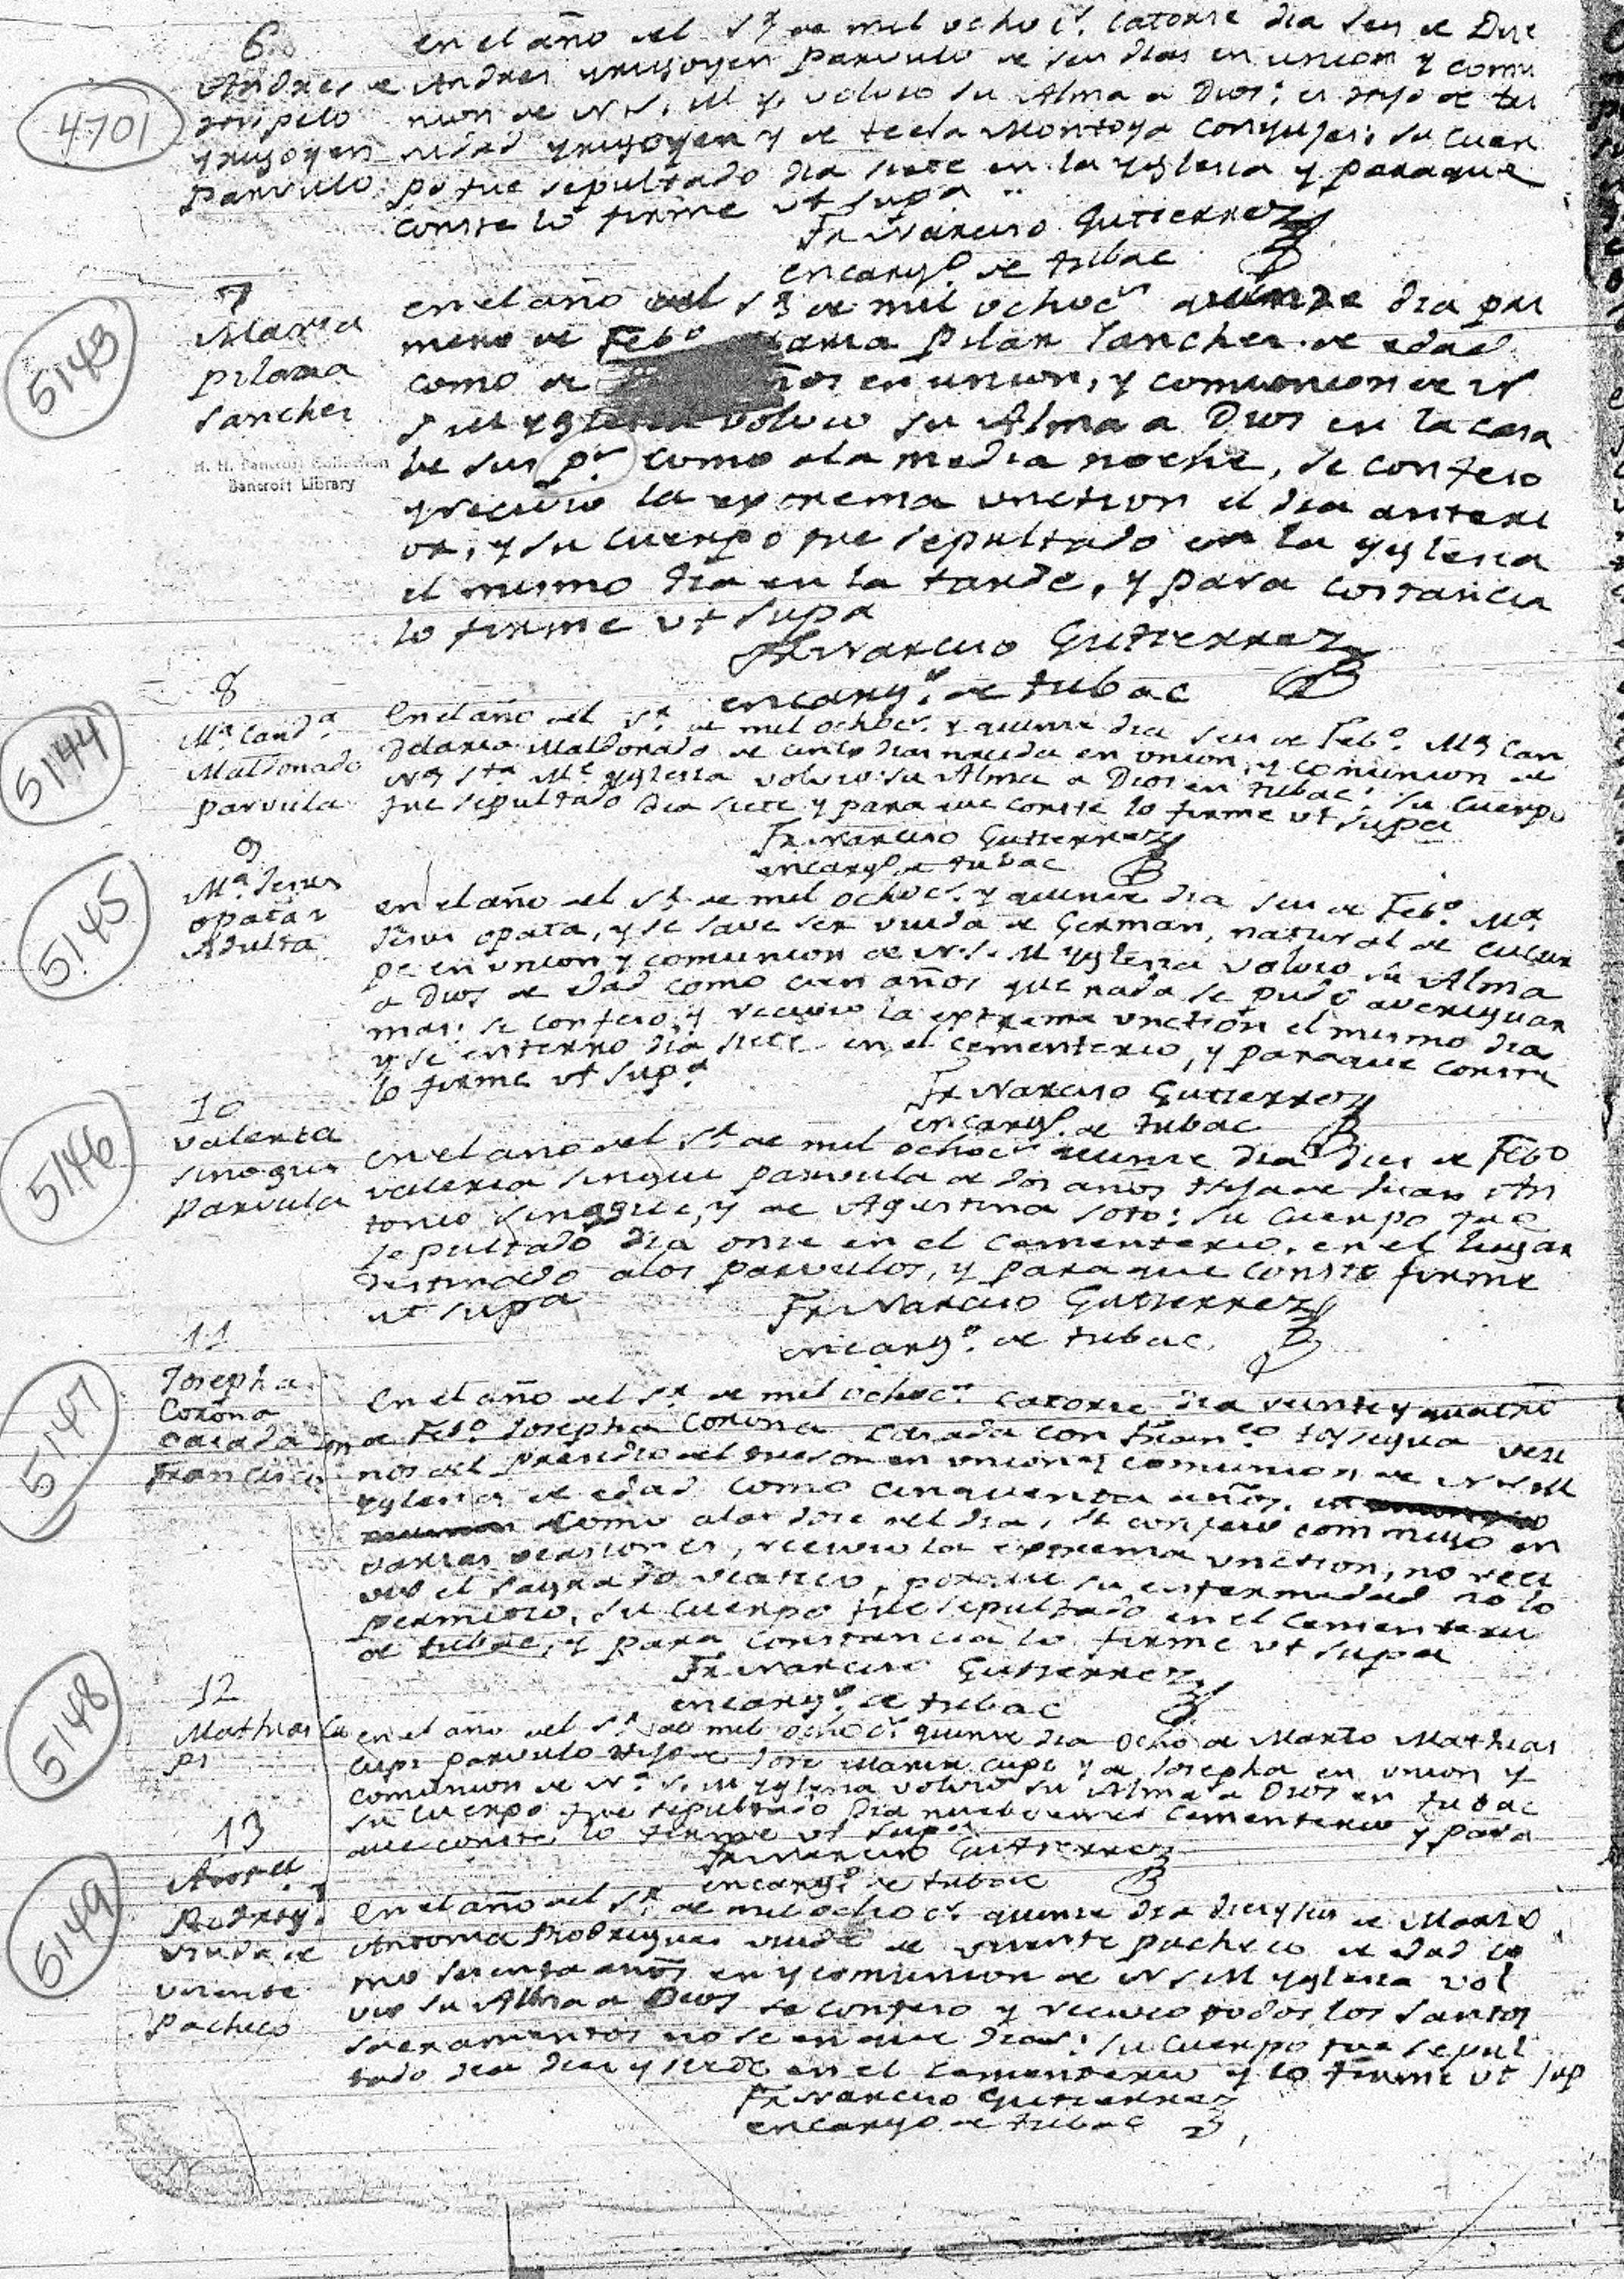 6
Andres de
Yrigoyen
Parvulo
4701
en el año del Sr. de mil ochoc.s Catorse dia seis de Dize
Andres yrigoyen Parvulo de seis dias en union y comu
nion de N. S. M. Y. volvio su Alma a Dios: es hijo de tri
nidad yrigoyen y de tecla Montoya Conyujes: su Cuer
po fue sepultado dia siete en la yglesia y paraque
conste lo firme ut supa
Fr Narciso Gutierrez
encargº de tubac
7
Maria
pilara
Sanches
5143
H. H. Bancroft Collection
Bancroft Library
en el año del Sr de mil ochocs quinze dia pri
mero de Febº Maria Pilar Sanches de edad
como de años en union, y comunion de N
S M yglesia volvio su Alma a Dios en la casa
de sus ps como ala media noche, se confeso
y recivio la extrema unction el dia anteri
or, y su cuerpo fue sepultado en la yglesia
el mismo dia en la tarde, y para costancia
lo firme ut supa
Fr Narciso Gutierrez
encargº de tubac
8
Mª Candª
Maldonado
parvula
5144
En el año del Sr. de mil ochocs. y quinse dia seis de Febº. Mª Can
delaria Maldonado de cinco dias nacida en union, y comunion de
Nª Sta Me yglesia volvio su Alma a Dios en tubac: su Cuerpo
fue sepultado dia siete y para que conste lo firme ut supa
Fr Narciso Gutierrez
encargº de tubac
9
Mª Jesus
opata
Adulta
5145
en el año del Sr. de mil ochocs. y quinse dia seis de Febº. Mª
Jesus opata, y se save ser viuda de German, natural de cucur
pe en union y comunion de N. S. M yglesia volvio su Alma
a Dios de edad como cien años que nada se pudo averiguar
mas: se confeso, y recivio la extrema unction el mismo dia
y se enterro dia siete en el cementerio, y paraque conste
lo firme ut supª
Fr Narciso Gutierrez
encargº. de tubac
10
Valeria
sinogui
parvula
5146
en el año del Sr. de mil ochocs quinse dia dies de Febº
Valeria sinogui parvula de dos años hija de Juan An
tonio sinogui, y de Agustina Soto: su Cuerpo fue
sepultado dia onse en el cementerio, en el lugar
destinado alos parvulos, y para que conste firme
ut supa
Fr Narciso Gutierrez
encargº. de tubac
11
Josepha
Corona
casada con
Francisco
5147
En el año del Sr. de mil ochocs. catorse dia veinte y quatro
de Febº Josepha Corona Casada con Franco veci
nos del presidio del tucson en union y comunion de N S M
yglesia de edad como cinquenta años.
como alas dose del dia, se confeso commigo en
varias ocasiones, recivio la extrema unction, no reci
vio el sagrado viatico, porque su enfermedad no lo
permitio, su cuerpo fue sepultado en el cementerio
de tubac, y para constancia lo firme ut supa
Fr Narciso Gutierrez
encargº. de tubac
12
Mathias Cu
pi
5148
en el año del Sr de mil ochocs quinse dia ocho de Marzo Mathias
Cupi parvulo Hijo de Jose Maria Cupi y de Josepha en union y
comunion de Nª S. M yglesia volvio su Alma a Dios en tubac
su cuerpo fue sepultado dia nueve en el Cementerio y para
que conste lo firme ut supª
Fr Narciso Gutierrez
encargº. de tubac
13
Rodrigˢ
viuda de
visente
Pacheco
5149
En el año del Sr. de mil ochocs. quinse dia dies y seis de Marzo
Antonia Rodrigues viuda de visente pacheco de edad co
mo sesenta años en y comunion de N S M yglesia vol
vio su Alma a Dios se confeso y recivio todos los santos
sacramentos no se en que dias: su cuerpo fue sepul
tado dia dies y siete en el Cementerio y lo firme ut sup
Fr Narciso Gutierrez
encargo de tubac